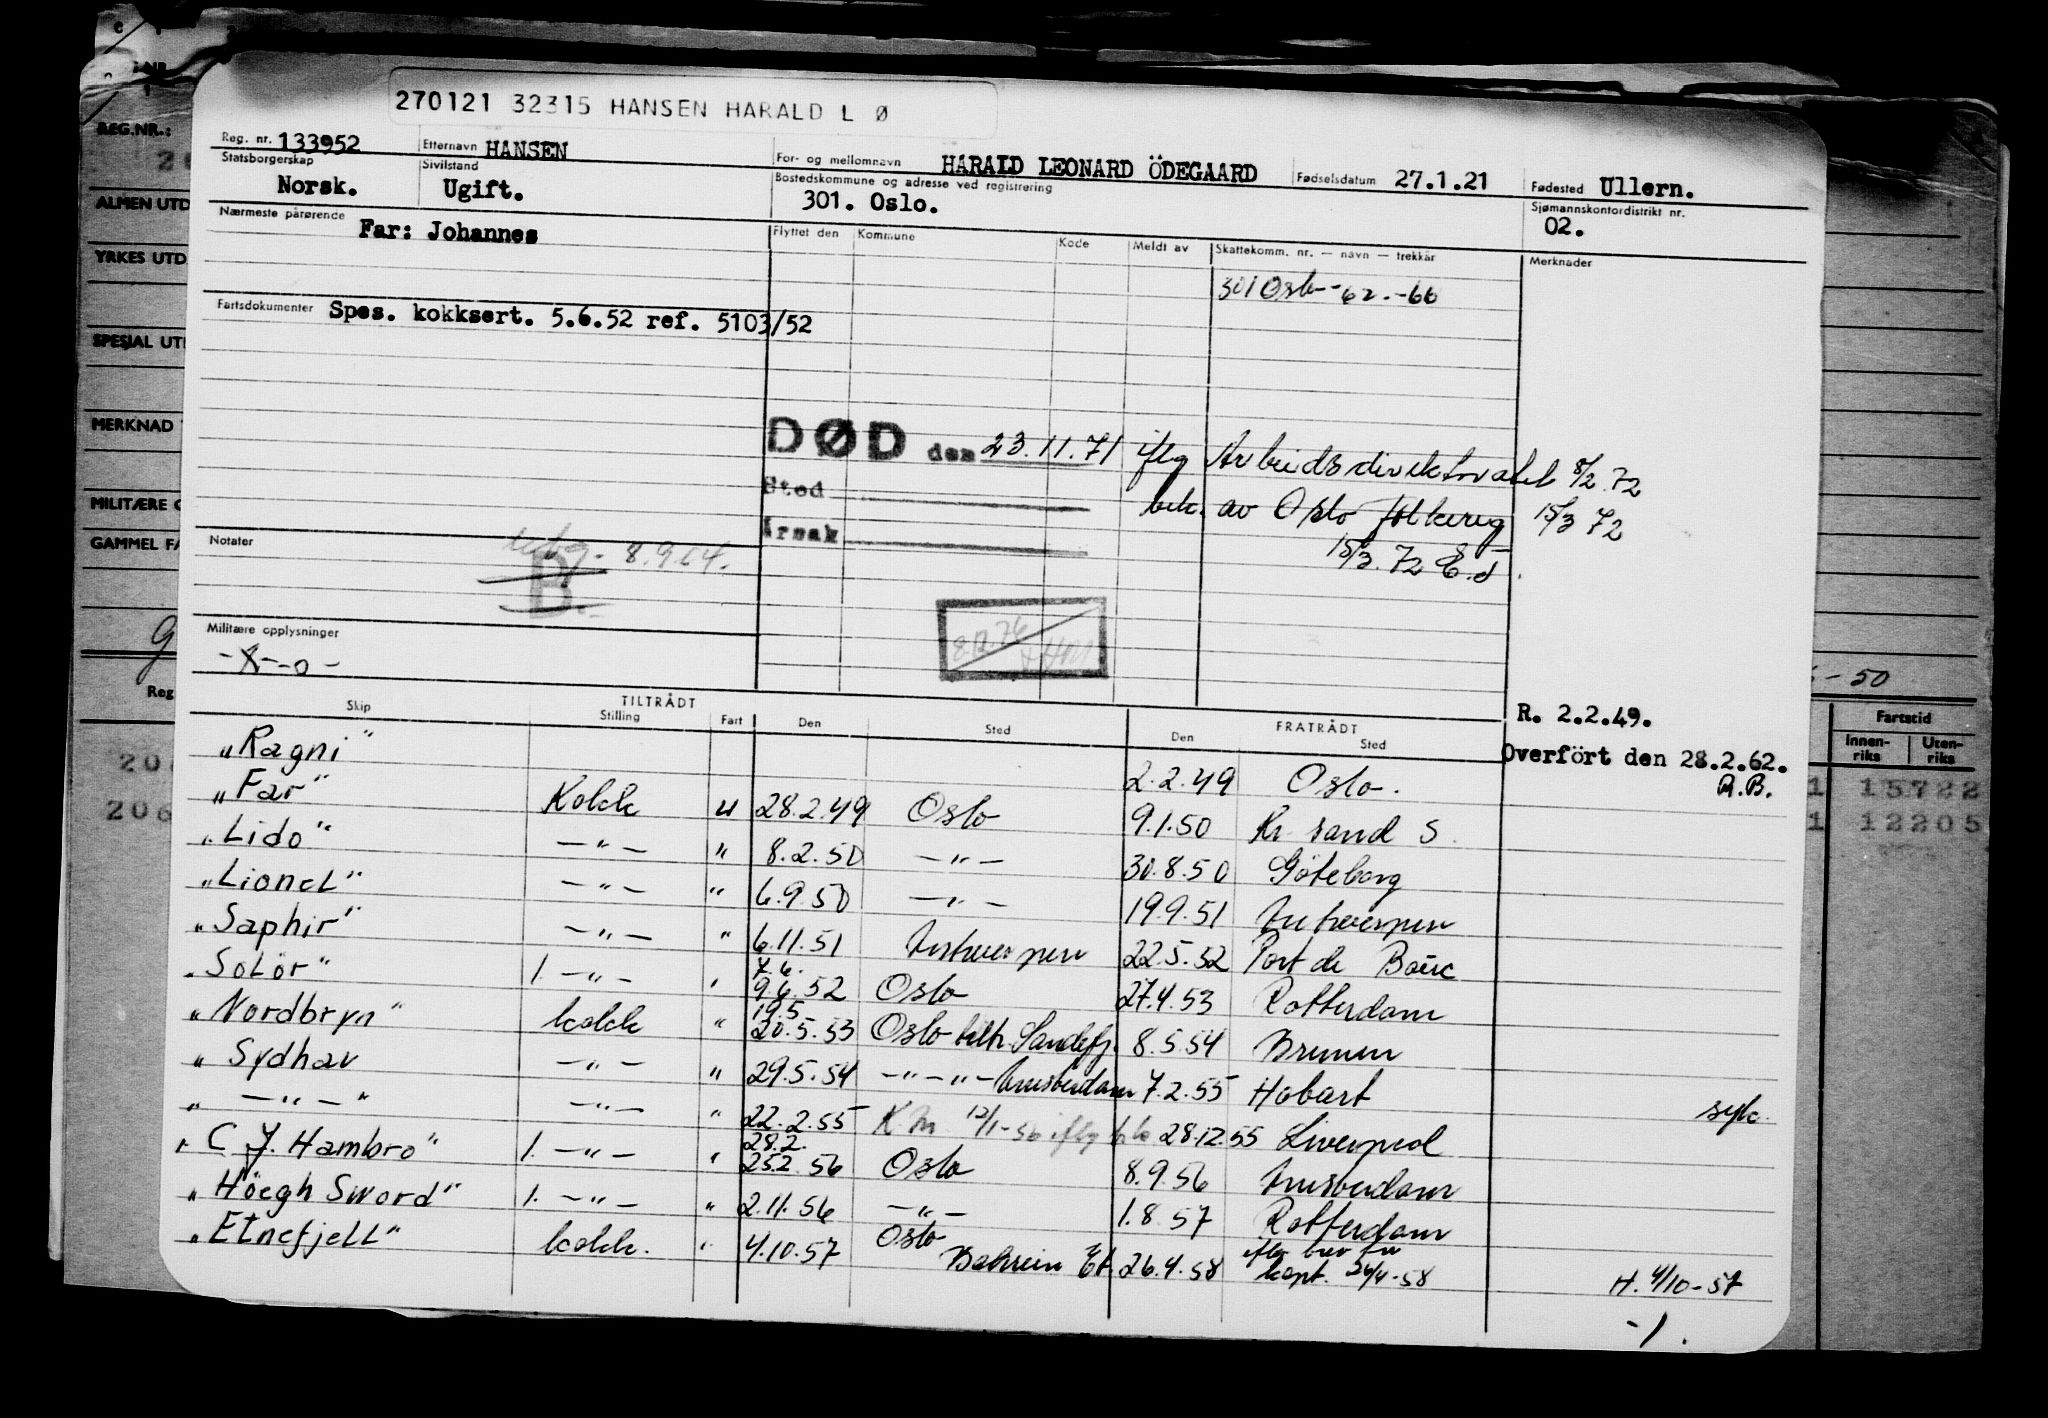 270121 32315 HANSEN HARALD L Ø
Reg. nr. 133952 Etternavn HANSEN For- og mellomnavn HARALD LEONARD ÖDEGAARD Fødselsdatum 27.1.21 Fødested Ullern.
Statsborgerskap Norsk. Sivilstand Ugift. Bostedskommune og adresse ved registrering 301. Oslo. Sjømannskontordistrikt nr. 02.
Nærmeste pårørende Far: Johannes Flyttet den Kommune Kode Meldt av Skattekomm. nr. — navn — trekkår Merknader
301 Oslo - 62. - 66
Fartsdokumenter Spes. kokksert. 5.6.52 ref. 5103/52
DØD den 23.11.71 iflg Arbeidsdirektoratet 8/2.72
Sted bek. av Oslo folkereg 15/3 72
Årsak 15/3.72
Notater 8.9.64.
B.
Militære opplysninger
R. 2.2.49.
Overfört den 28.2.62.
R.B.
Skip TILTRÅDT Stilling Fart Den Sted FRATRÅDT Den Sted
"Ragni" 2.2.49 Oslo.
"Far" Kokk u 28.2.49 Oslo 9.1.50 Kr sand S.
"Lido" — " — " 8.2.50 — " — 30.8.50 Göteborg
"Lionel" — " — " 6.9.50 — " — 19.9.51 Antwerpen
"Saphir" — " — " 6.11.51 Antwerpen 22.5.52 Port de Bouc
"Solör" 1. — " — " 7.6. 9.6.52 Oslo 27.4.53 Rotterdam
"Nordbryn" kokk " 19.5 20.5.53 Oslo tiltr. Sandefj. 8.5.54 Bremen
"Sydhav — " — " 29.5.54 — " — " — Amsterdam 7.2.55 Hobart syk.
" — " — " — " — " 22.2.55 12/1-56 iflg 28.12.55 Liverpool
"C. J. Hambro" 1. — " — " 28.2. 25.2.56 Oslo 8.9.56 Amsterdam
"Höegh Sword" 1. — " — " 2.11.56 — " — 1.8.57 Rotterdam
"Etnefjell" kokk. " 4.10.57 Oslo Bahrein 26.4.58 iflg brev fra kapt. 26/4-58 H. 4/10-57
-1.
REG.NR.:
ALMEN UTD
YRKES UTD
SPESIAL UT
MERKNAD
MILITÆRE
GAMMEL FA
Reg
- 50
Fartstid
Innenriks Utenriks
1 15722
1 12205
206